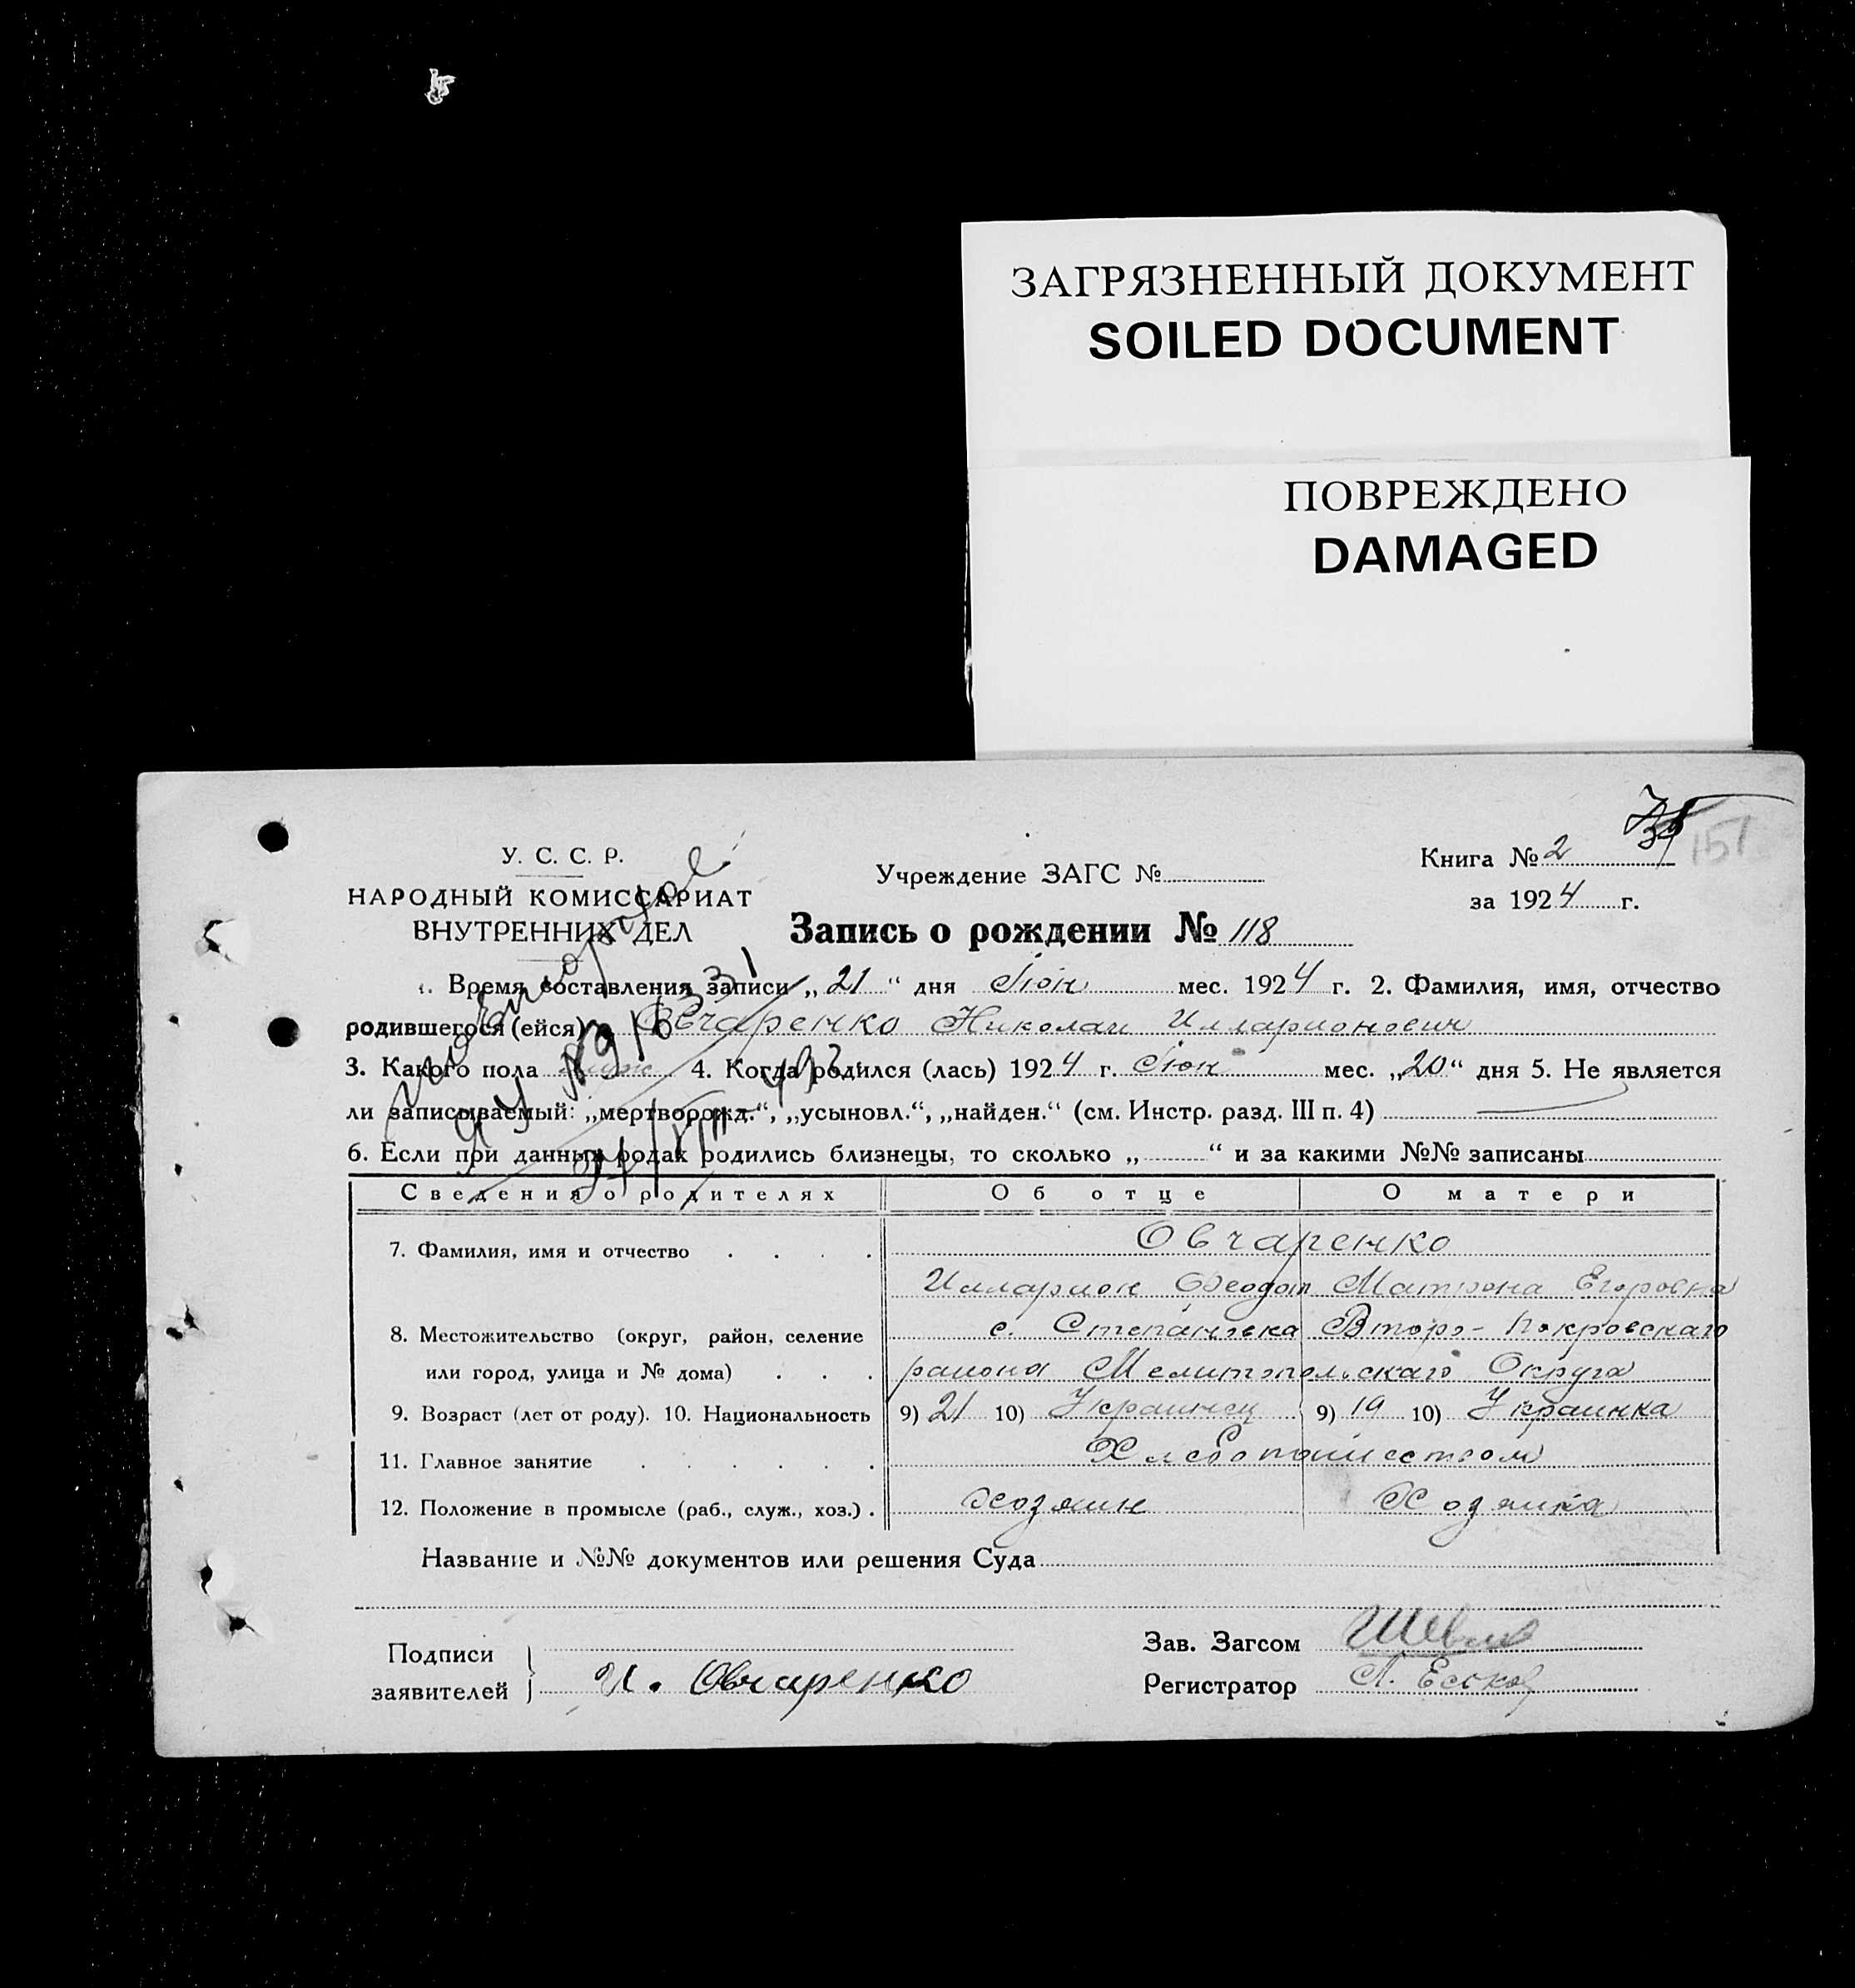 ЗАГРЯЗНЕННЫЙ ДОКУМЕНТ
SOILED DOCUMENT
ПОВРЕЖДЕНО
DAMAGED
151
У. С. С. Р.
НАРОДНЫЙ КОМИССАРИАТ
ВНУТРЕННИХ ДЕЛ
Учреждение ЗАГС №
Книга № 2
за 1924 г.
Запись о рождении № 118
1. Время составления записи „21“ дня Іюн мес. 1924 г. 2. Фамилия, имя, отчество
родившегося (ейся) Овчаренко Николай Илларионович
3. Какого пола муж 4. Когда родился (лась) 1924 г. Іюн мес. „20“ дня 5. Не является
ли записываемый: „мертворожд.“, „усыновл.“, „найден.“ (см. Инстр. разд. III п. 4)
6. Если при данных родах родились близнецы, то сколько „ “ и за какими №№ записаны
Повторное
Сведения о родителях Об отце О матери
7. Фамилия, имя и отчество Овчаренко
Илларион Феодол Матрона Егоровна
8. Местожительство (округ, район, селение с. Степановка Второ-Покровскаго
или город, улица и № дома) района Мелитопольскаго Округа
9. Возраст (лет от роду). 10. Национальность 9) 21 10) Украинец 9) 19 10) Украинка
11. Главное занятие Хлебопашеством
12. Положение в промысле (раб., служ., хоз.) Хозяин Хозяйка
Название и №№ документов или решения Суда
Подписи
заявителей И. Овчаренко
Зав. Загсом
Регистратор Л.